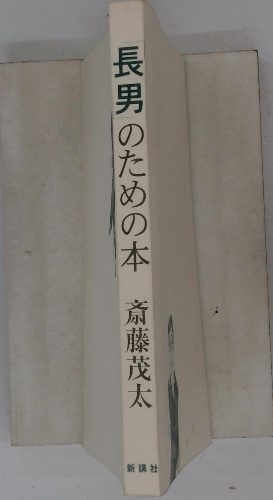 「長男」のための本
斎藤茂太
新講社